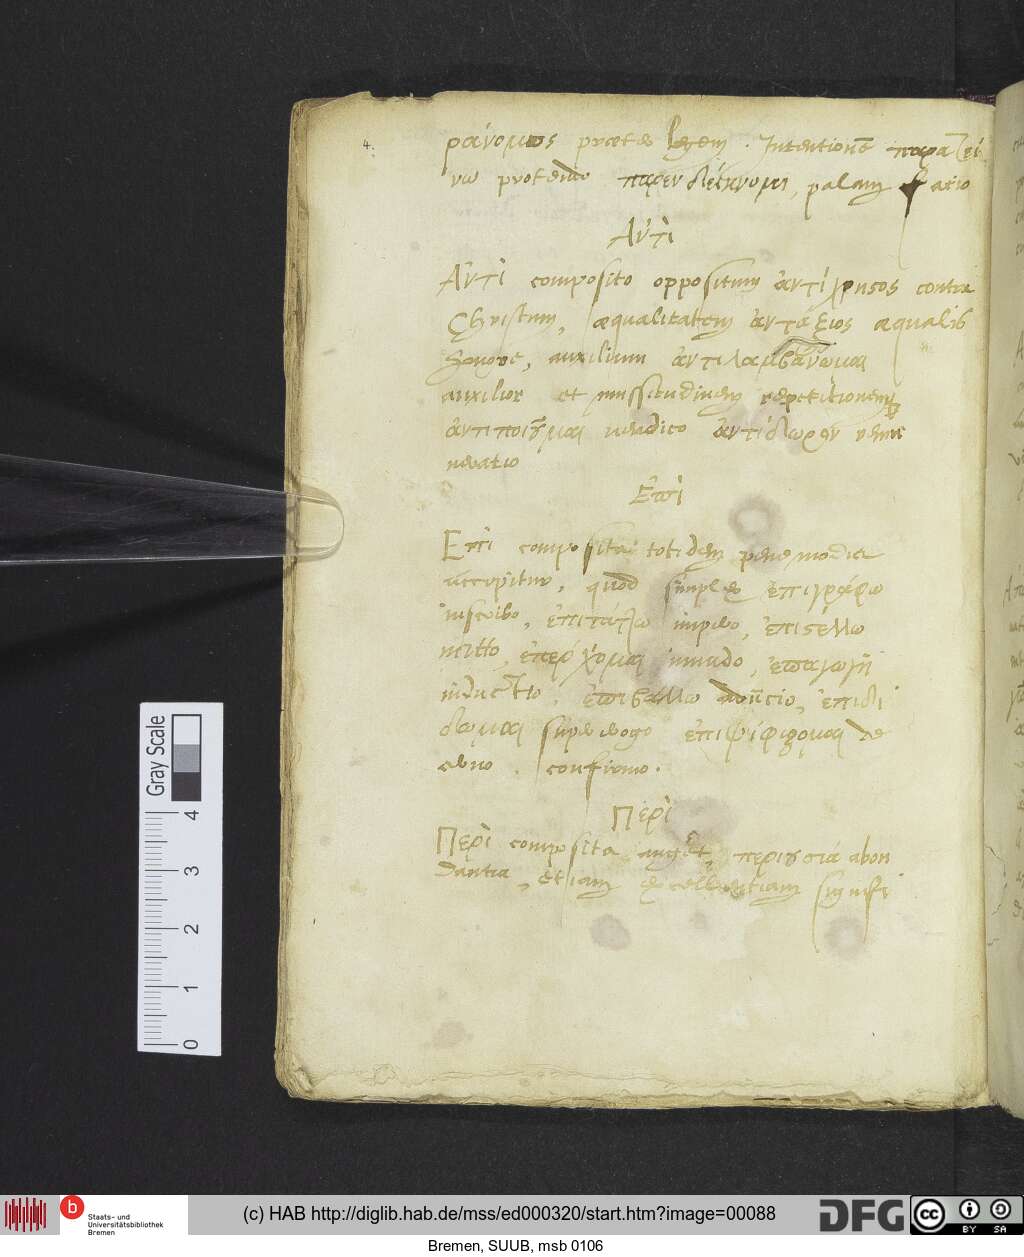 4.
ράνομος præter legem. Intentionē παρατεί
νω protendo παρενδείκνυμι, palam facio
Αντὶ
Αντὶ composito oppositum ἀντίχρηςος contra
Christum, æqualitatem ἀντάξιος æqualis
honore, auxilium ἀντιλαμβάνωμαι
auxilior et mussitudinem repetitionem
ἀντιποιȣμαι vendico ἀντίδωρον remu
neratio
Επὶ
Επὶ composita totidem pene modis
accipitur, quod simplex ἐπιγράφω
inscribo, ἐπιτάτlω impero, ἐπιςέλλω
mitto, ἐπέρχομαι invado, ἐπαγωγὴ
inductio, ἐπιβάλλω adijcio, ἐπιδί
δωμαι superrogo ἐπιψίφιζομαι de
cerno. confirmo.
Περὶ
Περὶ composita auget, περιȣσιά abon
dantia, etiam excellentiam signifi
Gray Scale
4
3
2
1
0
b Staats- und
Universitätsbibliothek
Bremen
(c) HAB http://diglib.hab.de/mss/ed000320/start.htm?image=00088
DFG
cc BY SA
Bremen, SUUB, msb 0106